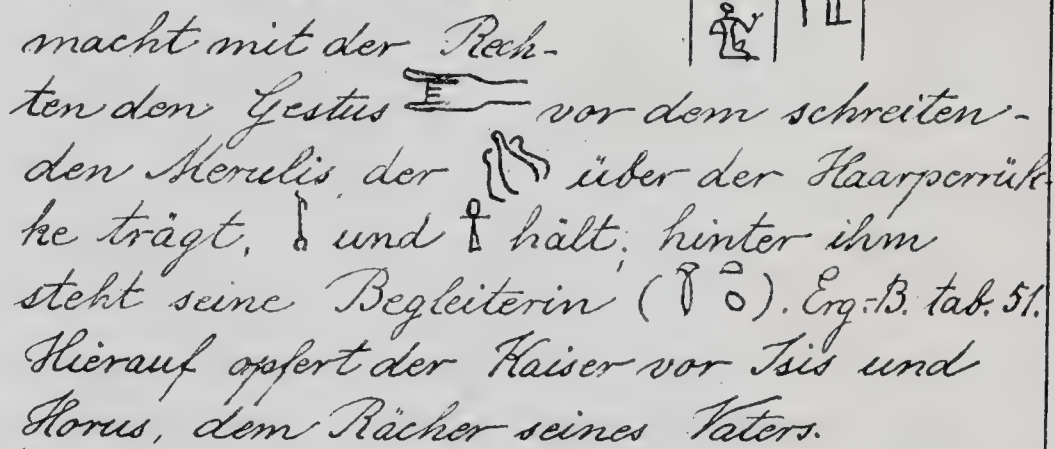 macht mit der Rech-
ten den Gestus vor dem schreiten-
den Merulis, der über der Haarperrük-
ke trägt, und hält; hinter ihm
steht seine Begleiterin ( ). Erg.-B. tab. 51.
Hierauf opfert der Kaiser vor Isis und
Horus, dem Rächer seines Vaters.